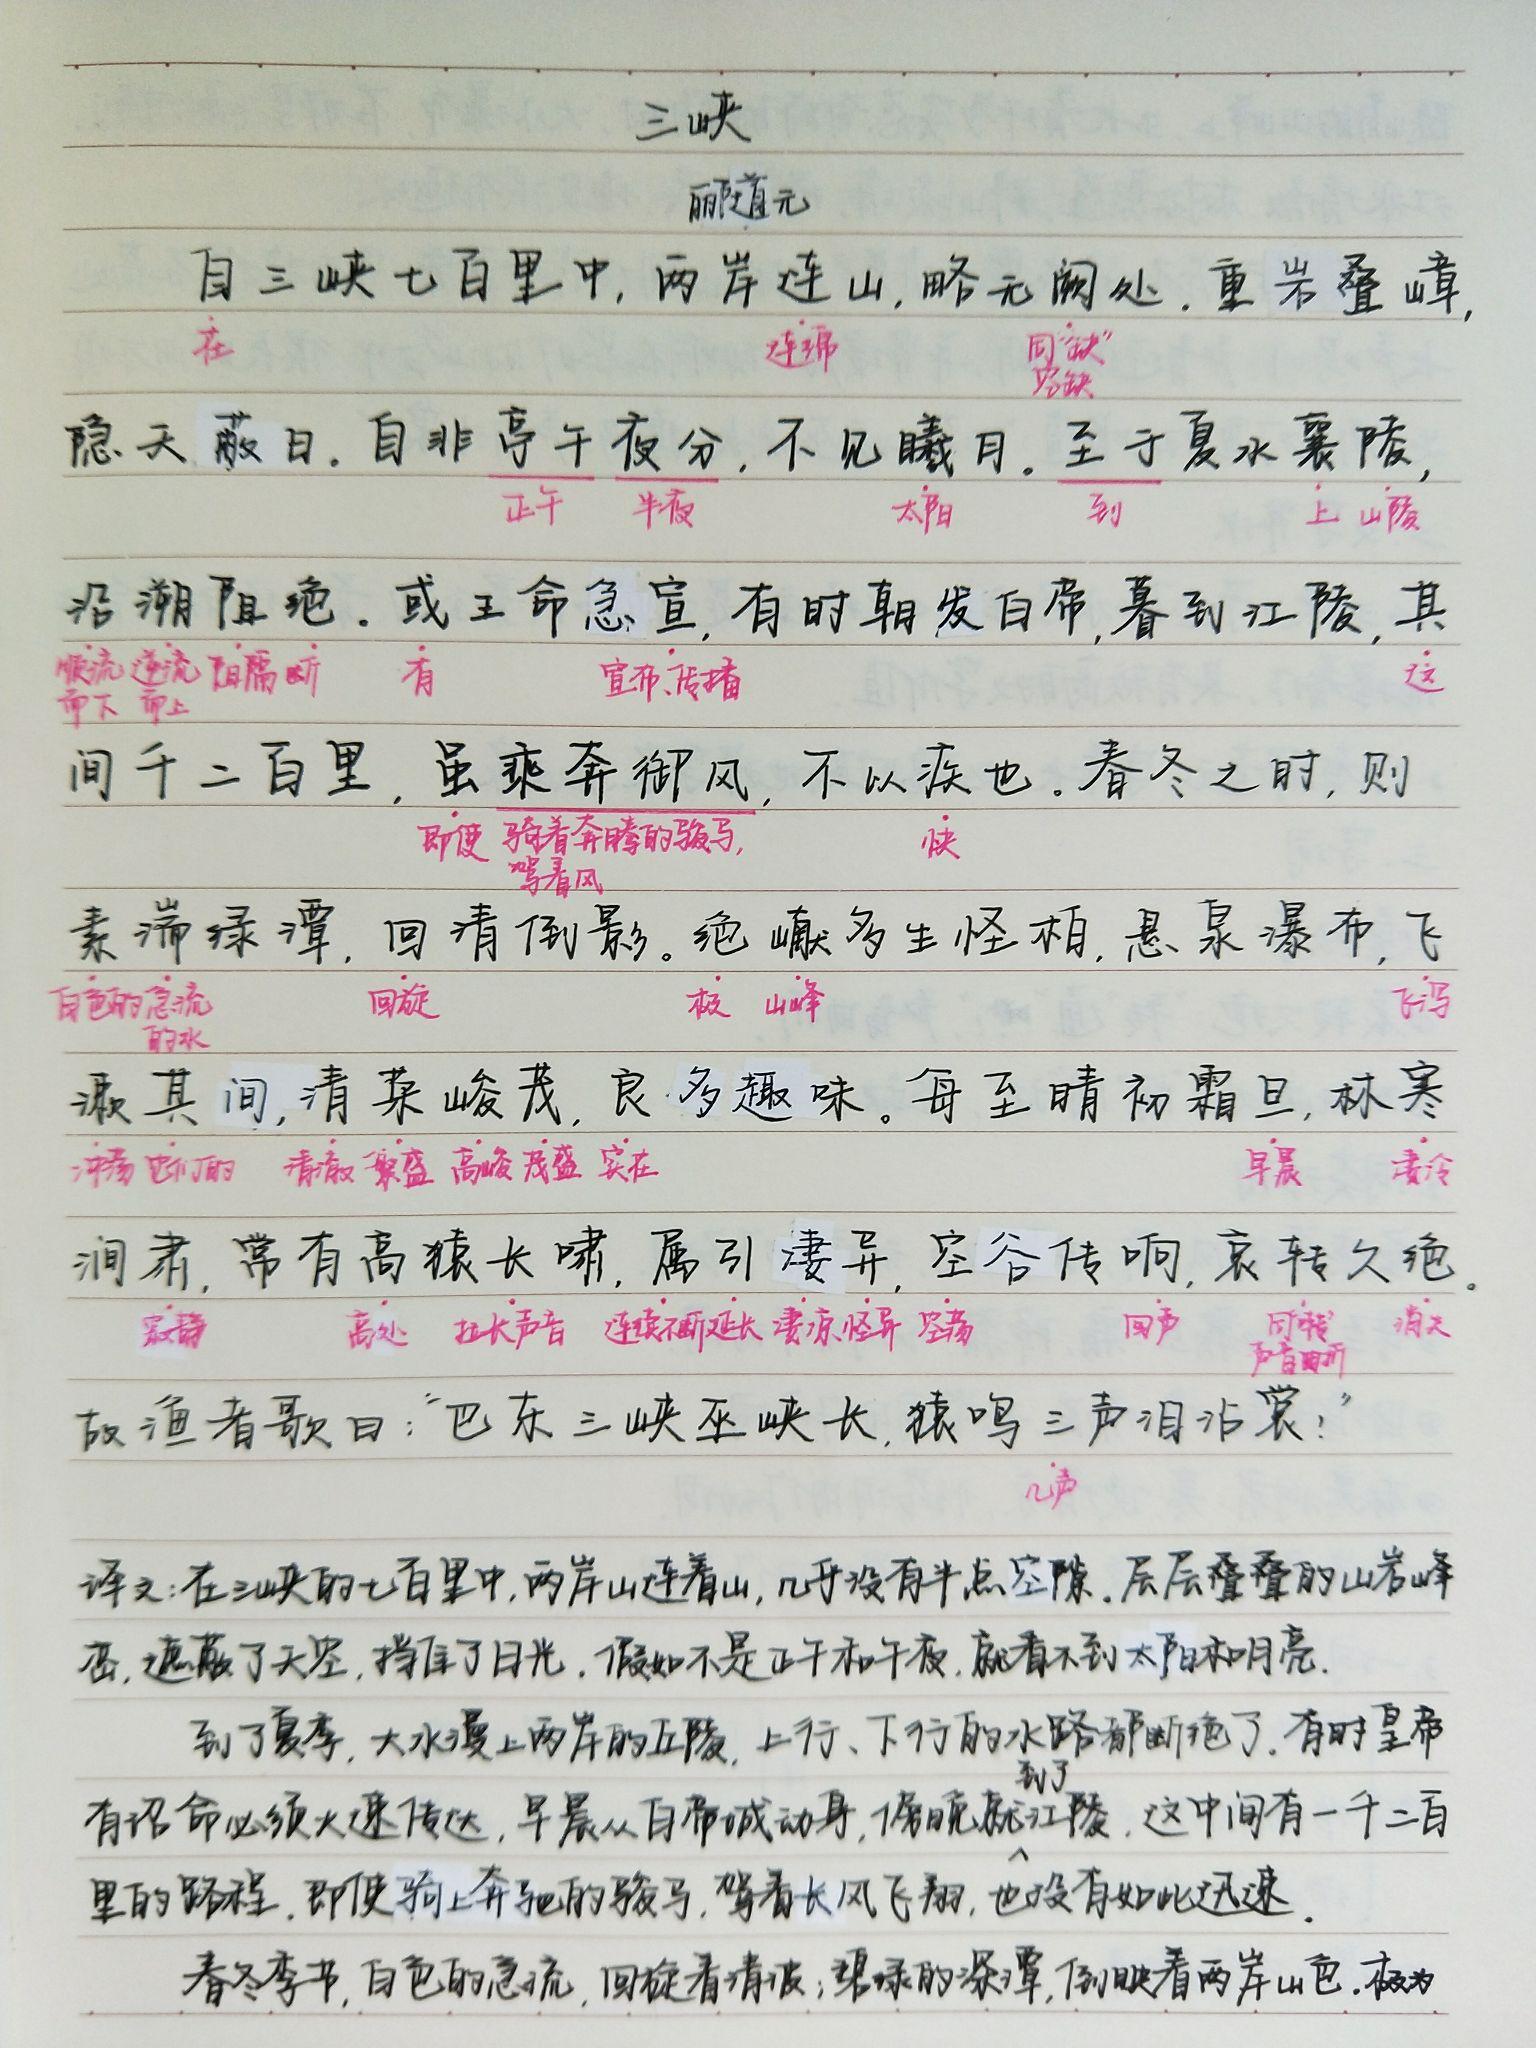 三峡
郦道元
自三峡七百里中，两岸连山，略无阙处。重岩叠嶂，
在 连绵 同“缺” 空缺
隐天蔽日。自非亭午夜分，不见曦月。至于夏水襄陵，
正午 半夜 太阳 到 上 山陵
沿溯阻绝。或王命急宣，有时朝发白帝，暮到江陵，其
顺流而下 逆流而上 阻隔 断 有 宣布、传播 这
间千二百里，虽乘奔御风，不以疾也。春冬之时，则
即使 骑着奔腾的骏马，驾着风 快
素湍绿潭，回清倒影。绝巘多生怪柏，悬泉瀑布，飞
白色的 急流的水 回旋 极 山峰 飞泻
漱其间，清荣峻茂，良多趣味。每至晴初霜旦，林寒
冲荡 它们的 清澈 繁盛 高峻 茂盛 实在 早晨 凄冷
涧肃，常有高猿长啸，属引凄异，空谷传响，哀转久绝。
寂静 高处 拉长声音 连续不断 延长 凄凉 怪异 空荡 回声 声音曲折 消失
故渔者歌曰：“巴东三峡巫峡长，猿鸣三声泪沾裳！”
几声
译文：在三峡的七百里中，两岸山连着山，几乎没有半点空隙。层层叠叠的山岩峰
峦，遮蔽了天空，挡住了日光。假如不是正午和午夜，就看不到太阳和月亮.
到了夏季，大水漫上两岸的丘陵，上行、下行的水路都断绝了。有时皇帝
有诏命必须火速传达，早晨从白帝城动身，傍晚就到了江陵，这中间有一千二百
里的路程。即使骑上奔驰的骏马，驾着长风飞翔，也没有如此迅速.
春冬季节，白色的急流，回旋着清波；碧绿的深潭，倒映着两岸山色。极为